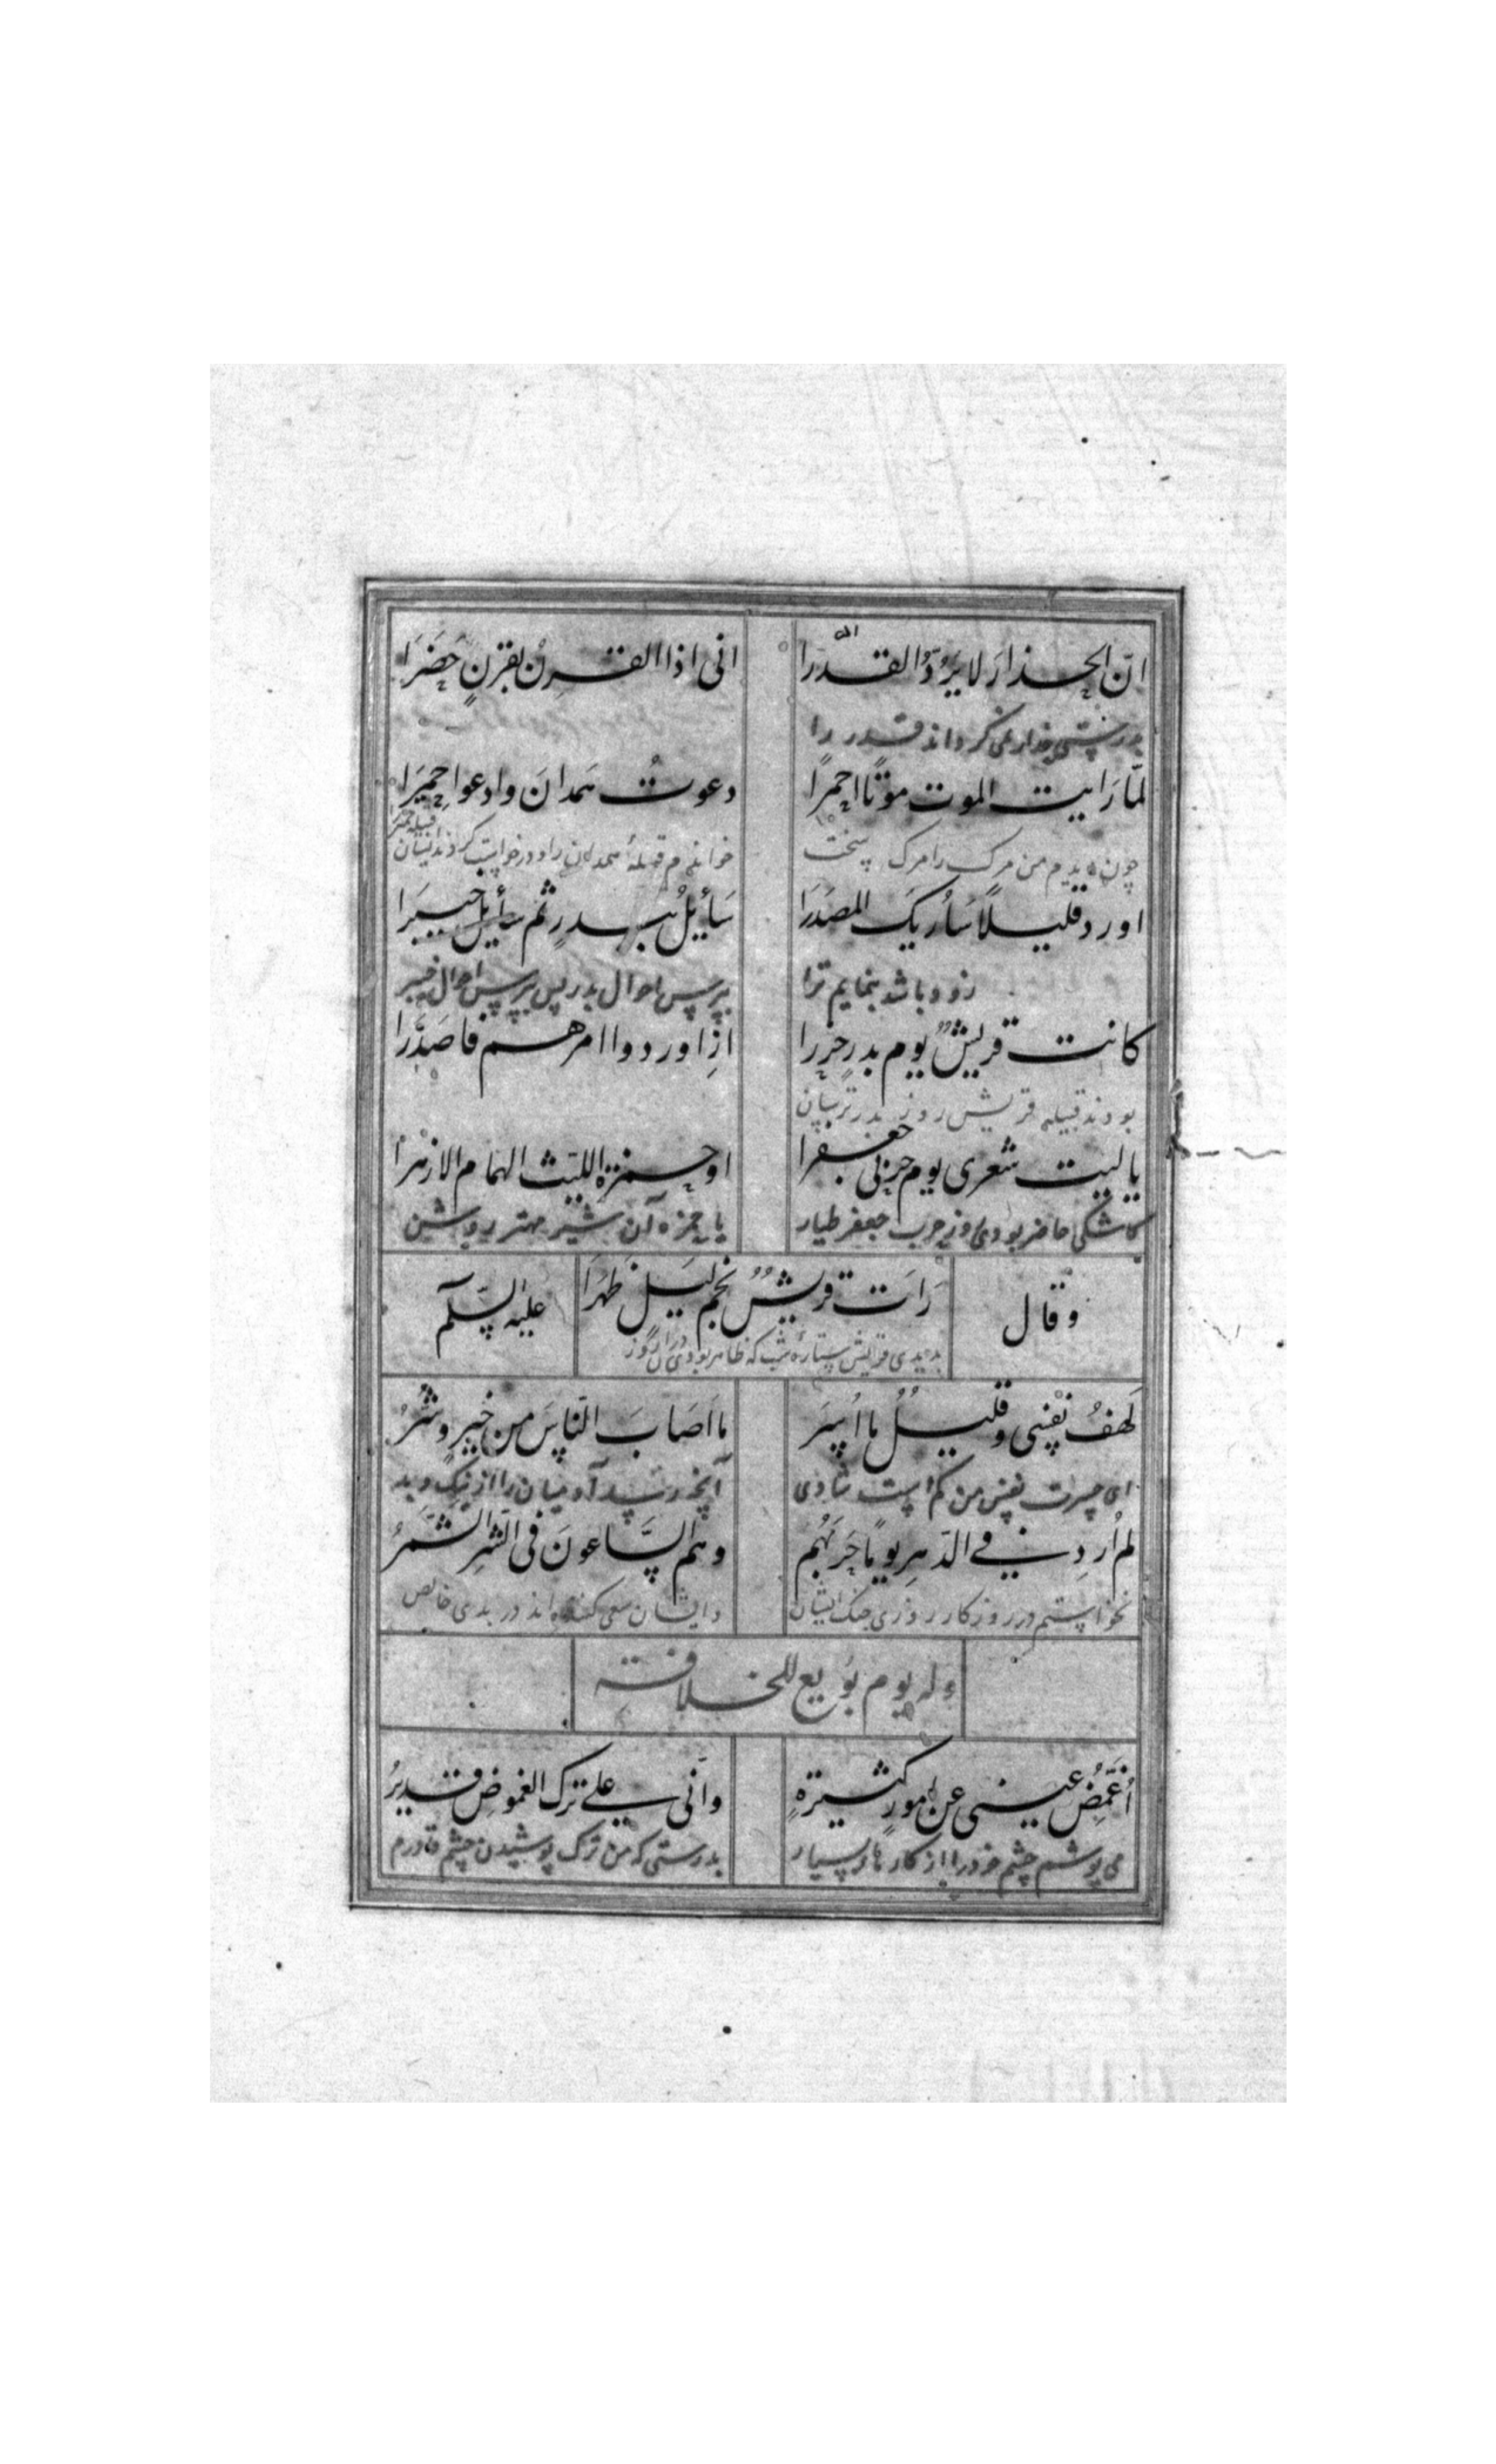 انّ الحذارَ لا یَرُدُّ القدّرا انی اذا القِرنُ بقرنٍ حَضَرَا
بدرستی حذار نمی کرداند قدر را
لمّا رَایت الموت موتًا احمرًا دعوتُ همدانَ وادعوا حِمیَرا
چون دیدم من مرک را مرک سخت خواندم قبیلهٔ همدان را و درخواست کردند ایشان قبیله حمیر
اورد قلیلاً سَأریکَ المصدَرَا سَأیلُ ببدرٍ ثُم سأیل خیبرَا
زود باشد بنمایم ترا بپرس احوال بدر پس بپرس احوال خیبر
کانت قریشٌ یوم بدرٍ جزرا اِذ اوردوا امرهم فاصدّرا
بودند قبیله قریش روز بدر
یا لیت شعری یوم حربی جعفرا او حمزة اللیث الهمام الازهرا
کاشکی حاضر بودی روز حرب جعفر طیار یا حمزه آن شیر مهتر روشن
وقال رَاَت قریشٌ نجم لیلٍ ظهَرَا علیه السّلم
بدیدی قریش ستارهٔ شب که ظاهر بودی دران روز
لَهفُ نفسی وقلیلُ ما اُسِرَ ما اَصَابَ النّاسَ من خیرٍ وشرُ
ای حسرت نفس من کم است شادی آنچه رسد آدمیان را از نیک و بد
لم اُرِد فی الدّهرِ یومًا حَربَهُم وهُم السَّاعونَ فی الشّرِ الشّمَرُ
نخواستم در روزکار روزی جنک ایشان وایشان سعی کننده اند در بدی خالص
وله یوم بُویع للخلافة
اُغَمِّضُ عینی عن اُمورٍ کثیرَةٍ وانّی علی ترک الغموضِ قدیرُ
می پوشم چشم خود را از کارهای بسیار بدرستی که من ترک پوشیدن چشم قادرم